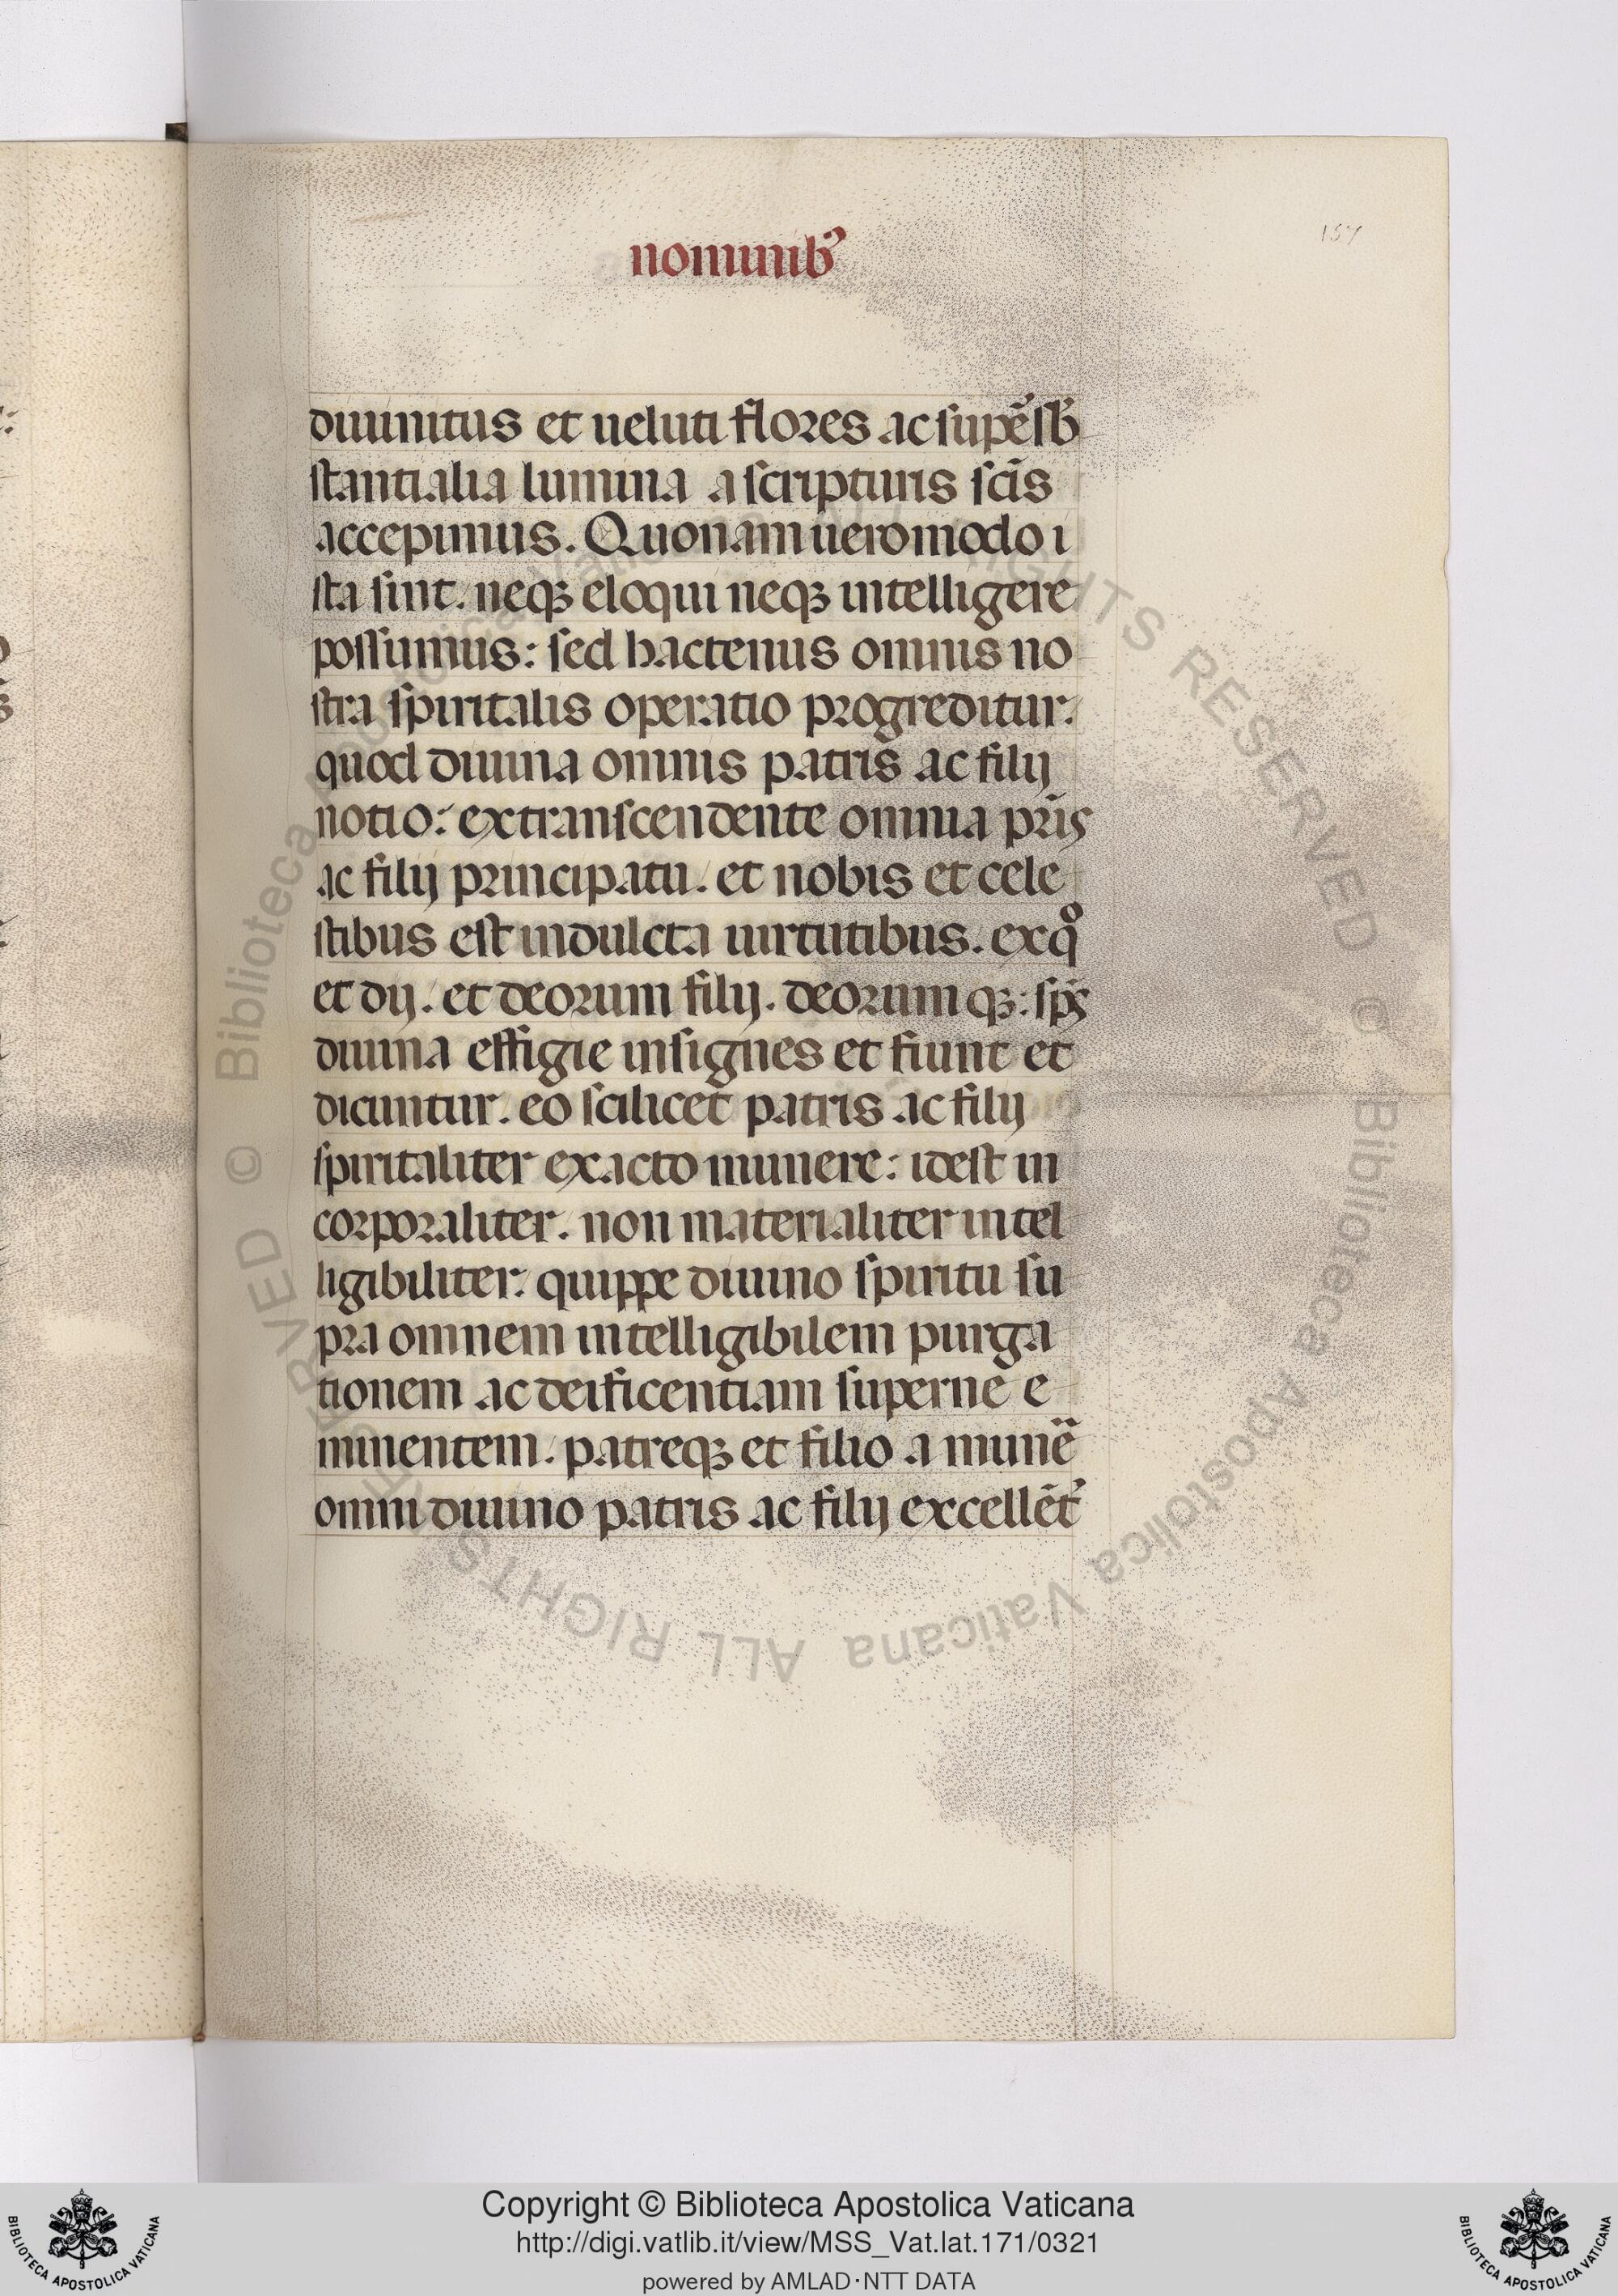 nominibꝰ
157
diuinitus et ueluti flores ac supe᷑sb̄
stantialia lumina a scripturis sc̄is
accepimus. Quonam uero modo i
sta sint. neqꝫ eloqui neqꝫ intelligere
possumus: sed hactenus omnis no
stra spiritalis operatio progreditur.
quod diuina omnis patris ac filij
notio: ex transcendente omnia pr̄is
ac filij principatu. et nobis et cele
stibus est indulcta uirtutibus. ex qͦ
et dij. et deorum filij. deorum qꝫ: sp̄s
diuina effigie insignes et fiunt et
dicuntur. eo scilicet patris ac filij
spiritaliter exacto munere: idest in
corporaliter. non materialiter intel
ligibiliter: quippe diuino spiritu su
pra omnem intelligibilem purga
tionem ac deificentiam superne e
minentem. patreqꝫ et filio a mune᷑
omni diuino patris ac filij excellēt᷑
Copyright © Biblioteca Apostolica Vaticana
http://digi.vatlib.it/view/MSS_Vat.lat.171/0321
powered by AMLAD·NTT DATA
BIBLIOTECA APOSTOLICA VATICANA
BIBLIOTECA APOSTOLICA VATICANA
© Biblioteca Apostolica Vaticana ALL RIGHTS RESERVED © Biblioteca Apostolica Vaticana ALL RIGHTS RESERVED